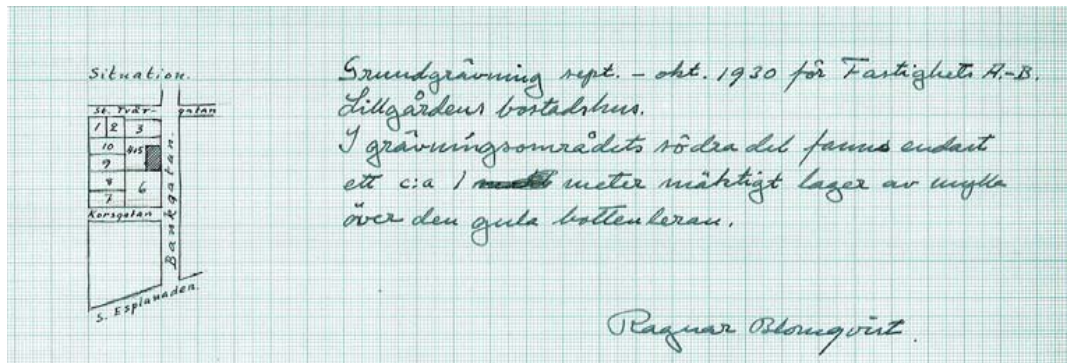 Situation.
St. Tvär-gatan
1 2 3
10 4+5
9
8 6
7
Korsgatan
Bankgatan.
S. Esplanaden.
Grundgrävning sept. - okt. 1930 för Fastighets A.-B.
Lillgårdens bostadshus.
I grävningsområdets södra del fanns endast
ett c:a 1 meter mäktigt lager av mylla
över den gula bottenleran.
Ragnar Blomqvist.